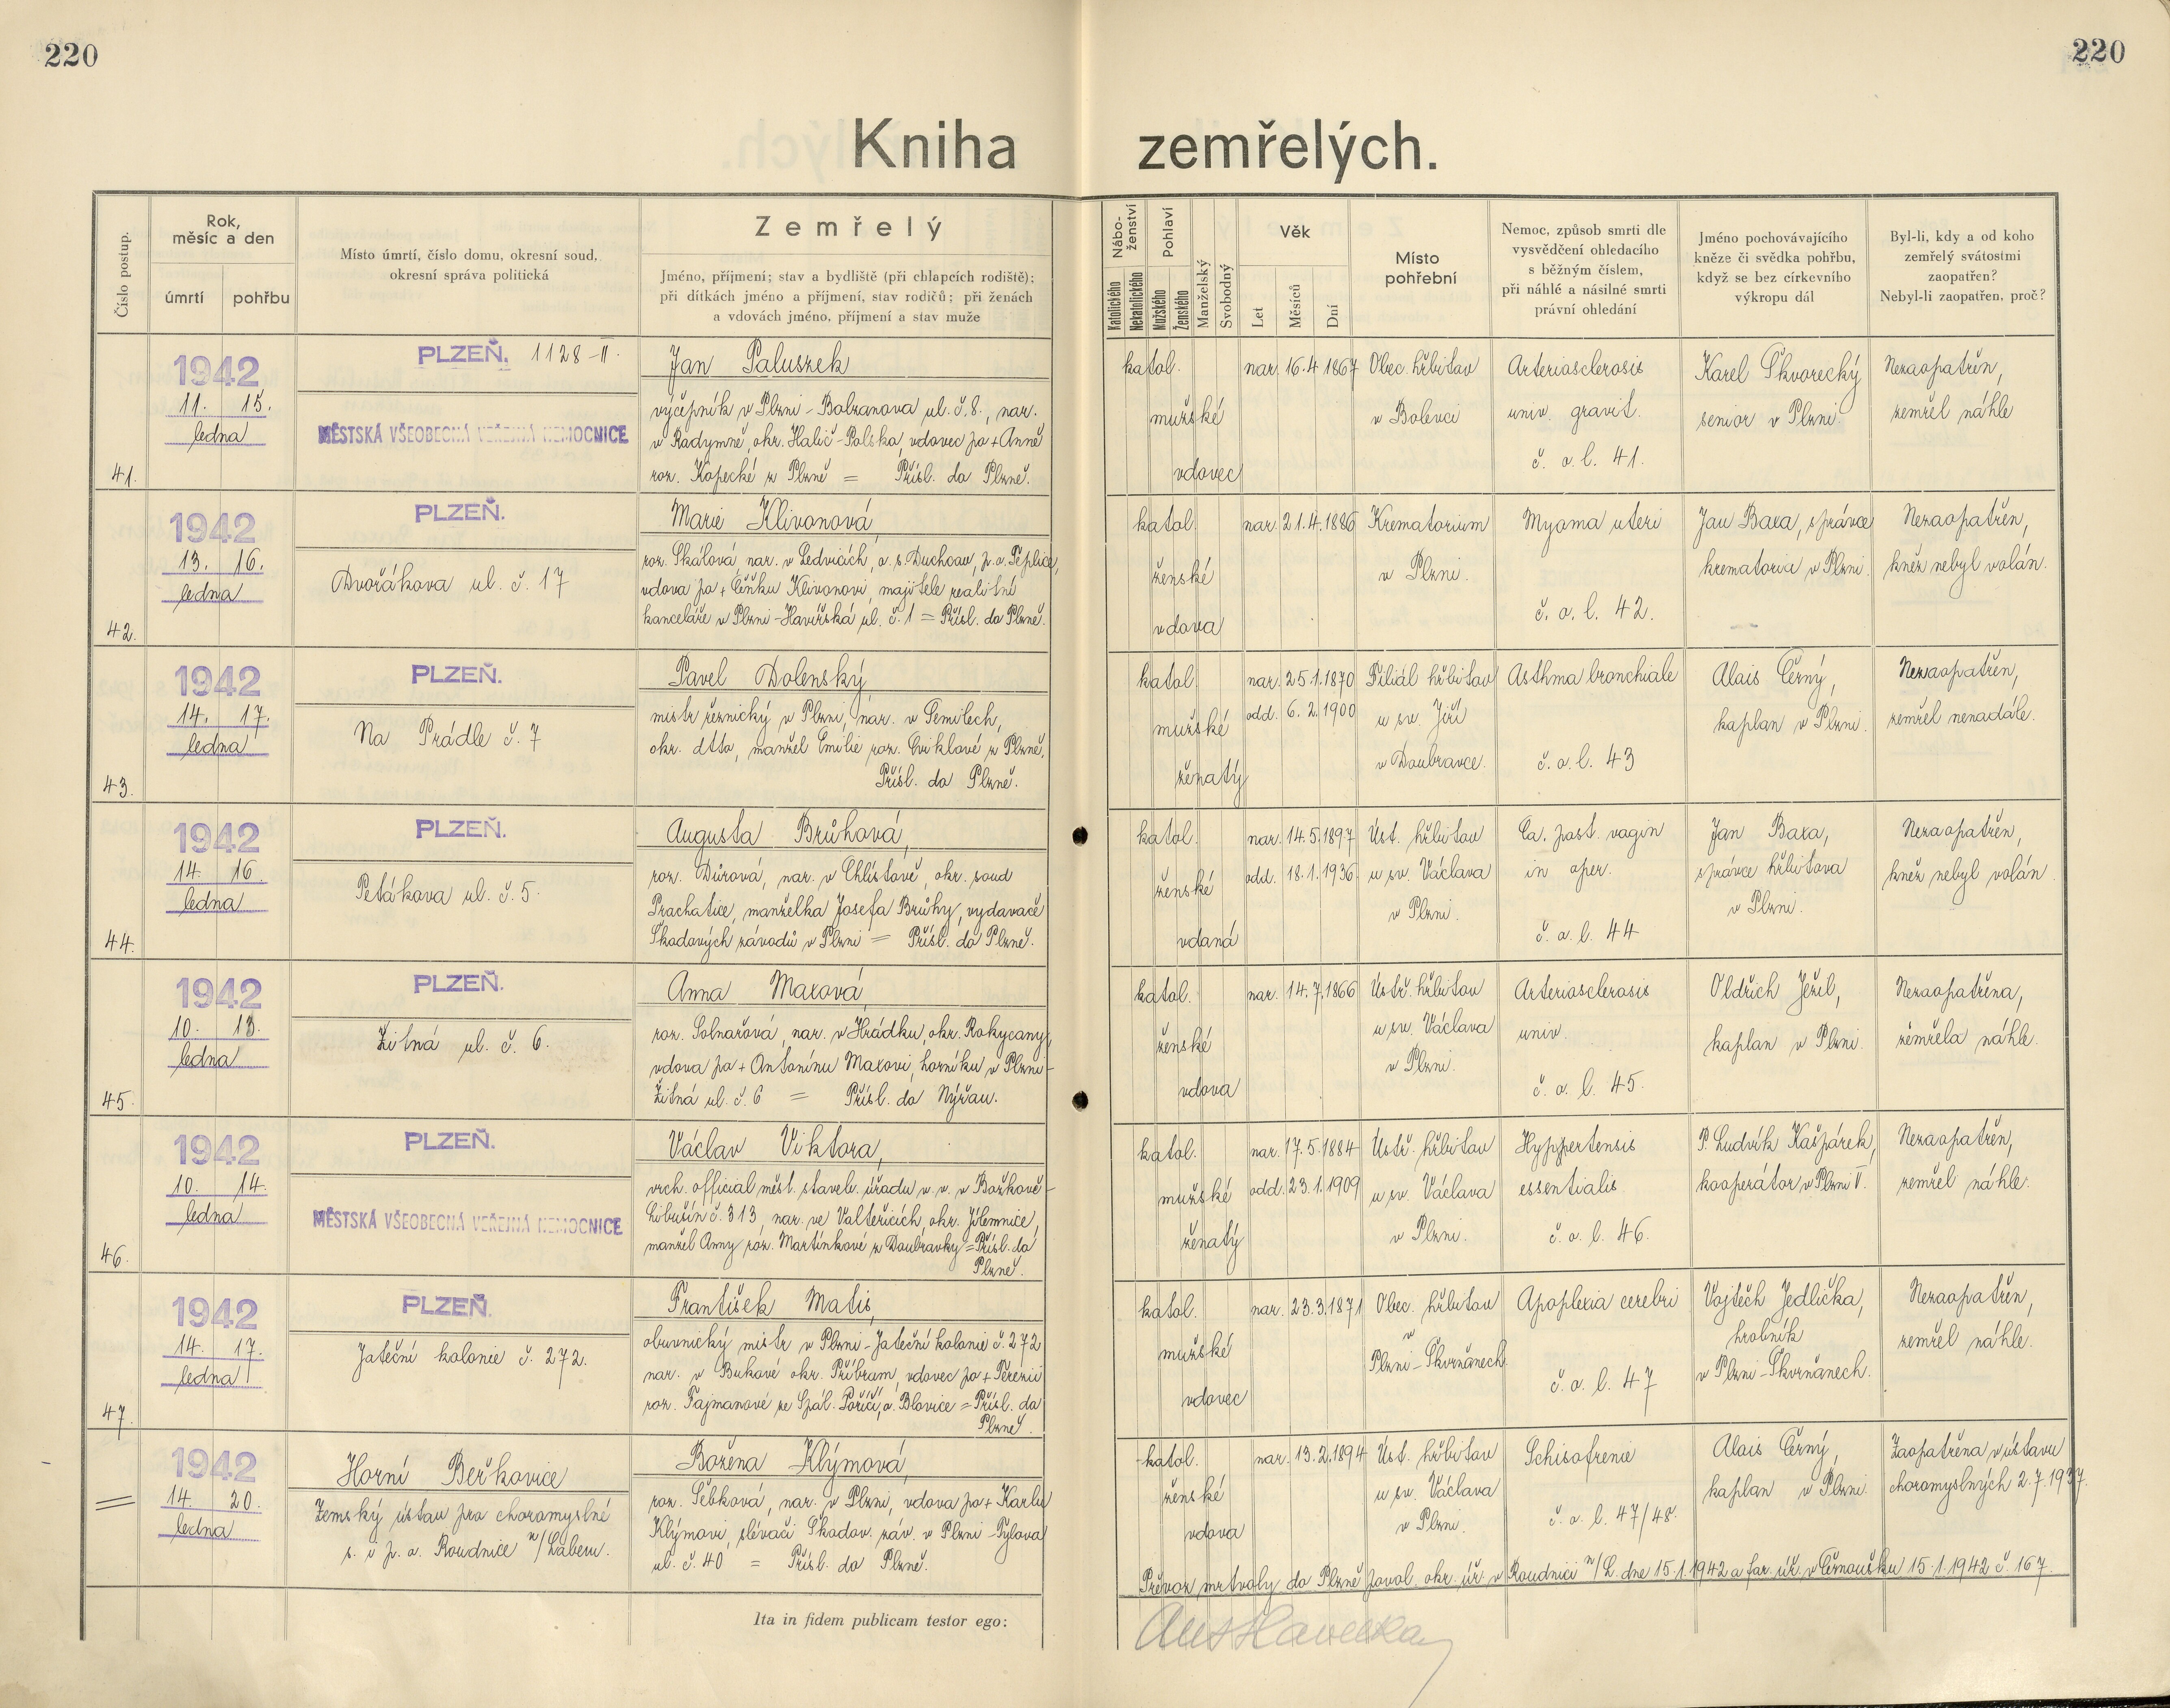 220
220
Kniha zemřelých.
Číslo postup.
Rok, měsíc a den
úmrtí
pohřbu
Místo úmrtí, číslo domu, okresní soud,
okresní správa politická
Zemřelý
Jméno, příjmení; stav a bydliště (při chlapcích rodiště);
při dítkách jméno a příjmení, stav rodičů; při ženách
a vdovách jméno, příjmení a stav muže
Nábo-
ženství
Katolického
Nekatolického
Pohlaví
Mužského
Ženského
Manželský
Svobodný
Věk
Let
Měsíců
Dní
Místo
pohřební
Nemoc, způsob smrti dle
vysvědčení ohledacího
s běžným číslem,
při náhlé a násilné smrti
právní ohledání
Jméno pochovávajícího
kněze či svědka pohřbu,
když se bez církevního
výkropu dál
Byl-li, kdy a od koho
zemřelý svátostmi
zaopatřen?
Nebyl-li zaopatřen, proč?
41.
1942
11. 15.
ledna
PLZEŇ. 1128-II.
MĚSTSKÁ VŠEOBECNÁ VEŘEJNÁ NEMOCNICE
Jan Paluszek
výčepník v Plzni - Bolzanova ul. č. 8., nar.
v Radymně, okr. Halič - Polska, vdovec po + Anně
roz. Kopecké z Plzně = Přísl. do Plzně.
katol.
mužské
vdovec
nar. 16.4 1867
Obec. hřbitov
v Bolevci
Arteriosclerosis
univ. gravit.
č. o. l. 41.
Karel Škvorecký
senior v Plzni.
Nezaopatřen,
zemřel náhle
42.
1942
13. 16.
ledna
PLZEŇ.
Dvořákova ul. č. 17
Marie Klivonová,
roz. Skálová, nar. v Ledvicích, o. s. Duchcov, p. o. Teplice,
vdova po + Čeňku Klivonovi, majitele realitní
kanceláře v Plzni - Havířská ul. č. 1 = Přísl. do Plzně.
katol.
ženské
vdova
nar. 21.4.1886
Krematorium
v Plzni.
Myoma uteri
č. o. l. 42.
Jan Baxa, správce
krematoria v Plzni.
Nezaopatřen,
kněz nebyl volán.
43.
1942
14. 17.
ledna
PLZEŇ.
Na Prádle č. 7
Pavel Dolenský,
mistr řeznický v Plzni, nar. v Semilech,
okr. dtto, manžel Emilie roz. Cviklové z Plzně.
Přísl. do Plzně.
katol.
mužské
ženatý
nar. 25.1.1870
odd. 6. 2. 1900
Filiál. hřbitov
u sv. Jiří
v Doubravce.
Asthma bronchiale
č. o. l. 43
Alois Černý,
kaplan v Plzni.
Nezaopatřen,
zemřel nenadále.
44.
1942
14. 16.
ledna
PLZEŇ.
Petákova ul. č. 5.
Augusta Brůhová,
roz. Důrová, nar. v Chlístově, okr. soud
Prachatice, manželka Josefa Brůhy, vydavače
Škodových závodů v Plzni = Přísl. do Plzně.
katol.
ženské
vdaná
nar. 14.5.1897
odd. 18.1.1936
Úst. hřbitov
u sv. Václava
v Plzni.
Ca. post. vagin
in oper.
č. o. l. 44
Jan Baxa,
správce hřbitova
v Plzni.
Nezaopatřen,
kněz nebyl volán.
45.
1942
10. 13.
ledna
PLZEŇ.
Žitná ul. č. 6.
Anna Maxová
roz. Solnařová, nar. v Hrádku, okr. Rokycany,
vdova po + Antonínu Maxovi, horníku v Plzni -
Žitná ul. č. 6 = Přísl. do Nýřan.
katol.
ženské
vdova
nar. 14.7.1866
Ústř. hřbitov
u sv. Václava
v Plzni.
Arteriosclerosis
univ.
č. o. l. 45.
Oldřich Ježil,
kaplan v Plzni.
Nezaopatřena,
zemřela náhle.
46.
1942
10. 14.
ledna
PLZEŇ.
MĚSTSKÁ VŠEOBECNÁ VEŘEJNÁ NEMOCNICE
Václav Viktora,
vrch. official měst. staveb. úřadu v. v. v Božkově -
Libušín č. 313, nar. ve Valteřicích, okr. Jilemnice,
manžel Anny roz. Martínkové z Doubravky = Přísl. do
Plzně.
katol.
mužské
ženatý
nar. 17.5.1884
odd. 23.1.1909
Ústř. hřbitov
u sv. Václava
v Plzni.
Hyppertensis
essentialis
č. o. l. 46.
P. Ludvík Kašpárek,
kooperátor v Plzni V.
Nezaopatřen,
zemřel náhle.
47.
1942
14. 17.
ledna
PLZEŇ.
Jateční kolonie č. 272.
František Matis,
obuvnický mistr v Plzni - Jateční kolonie č. 272
nar. v Bukové okr. Příbram, vdovec po + Terezii
roz. Fajmanové ze Spál. Poříčí, o. Blovice = Přísl. do
Plzně.
katol.
mužské
vdovec
nar. 23.3.1871
Obec. hřbitov
v
Plzni - Skvrňanech
Apoplexia cerebri
č. o. l. 47
Vojtěch Jedlička,
hrobník
v Plzni - Skvrňanech.
Nezaopatřen,
zemřel náhle.
1942
14. 20.
ledna
Horní Beřkovice
Zemský ústav pro choromyslné
s. i p. o. Roudnice n/Labem.
Božena Klýmová,
roz. Šebková, nar. v Plzni, vdova po + Karlu
Klýmovi, slévači Škodov. záv. v Plzni - Tylova
ul. č. 40 = Přísl. do Plzně.
katol.
ženské
vdova
nar. 13.2.1894
Úst. hřbitov
u sv. Václava
v Plzni.
Schisofrenie
č. o. l. 47/48.
Alois Černý,
kaplan v Plzni.
Zaopatřena v ústavu
choromyslných 2.7.1937.
Převoz mrtvoly do Plzně povol. okr. úř. v Roudnici n/L. dne 15.1.1942 a far. úř. v Černoušku 15.1.1942 č. 167.
Ita in fidem publicam testor ego: